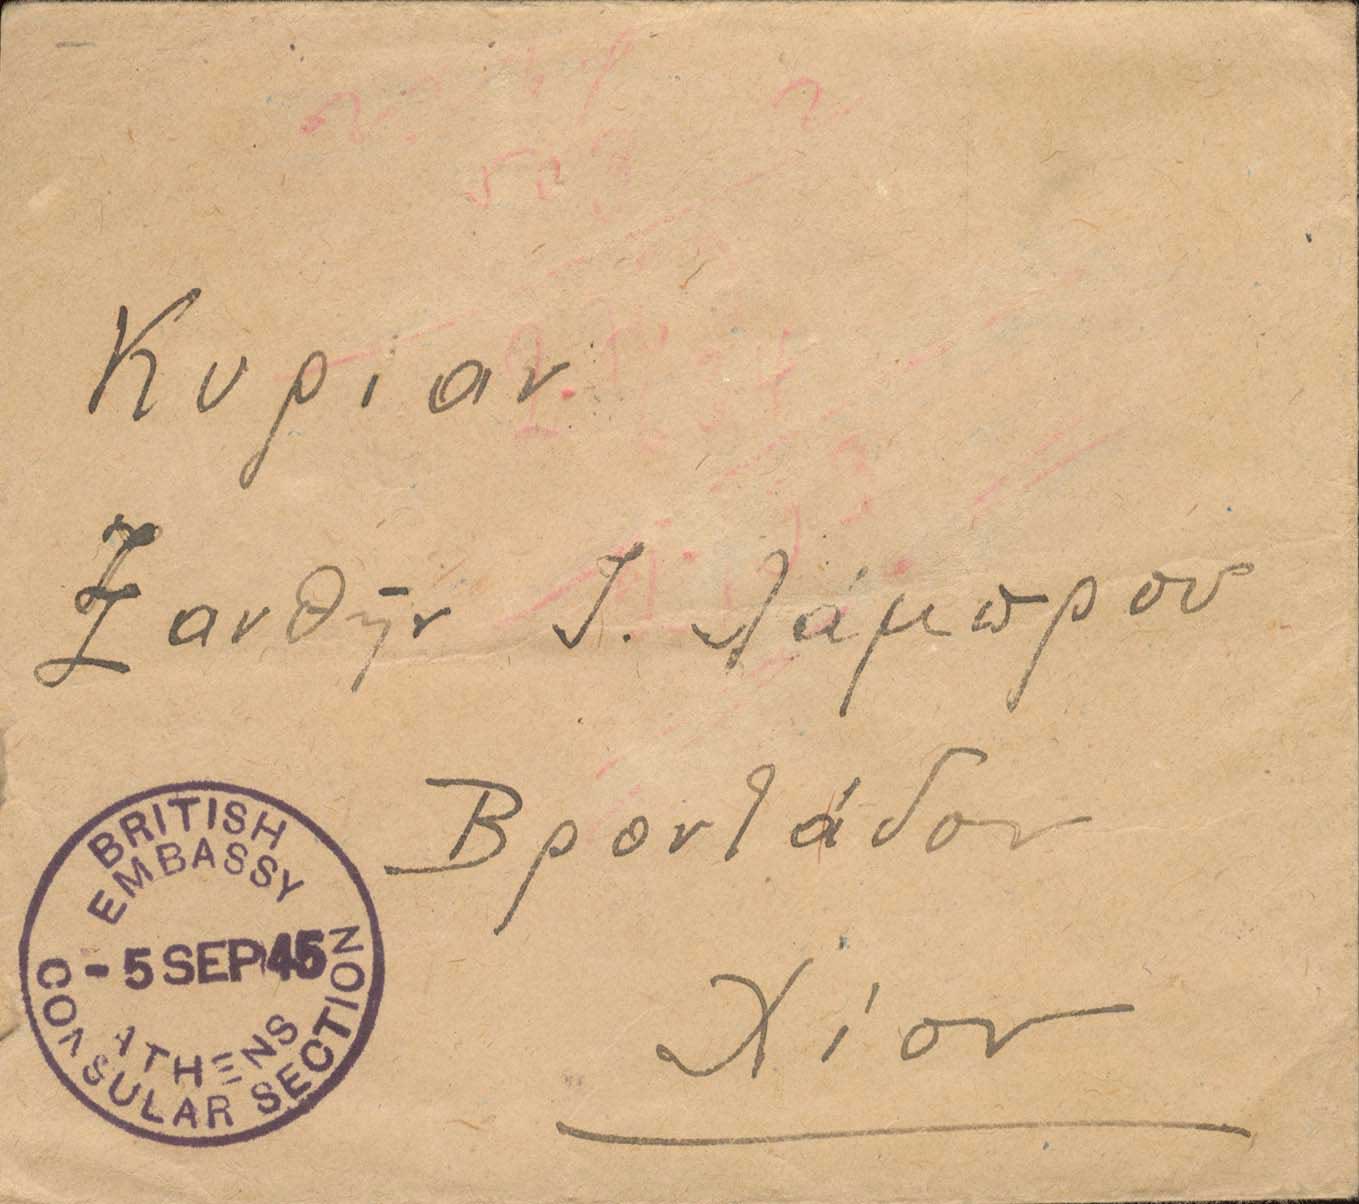 Κυρίαν
Ξανθῆν Ι. Λάμπρου
Βροντάδον
Χίον
BRITISH
EMBASSY
- 5 SEP 45
ATHENS
CONSULAR SECTION